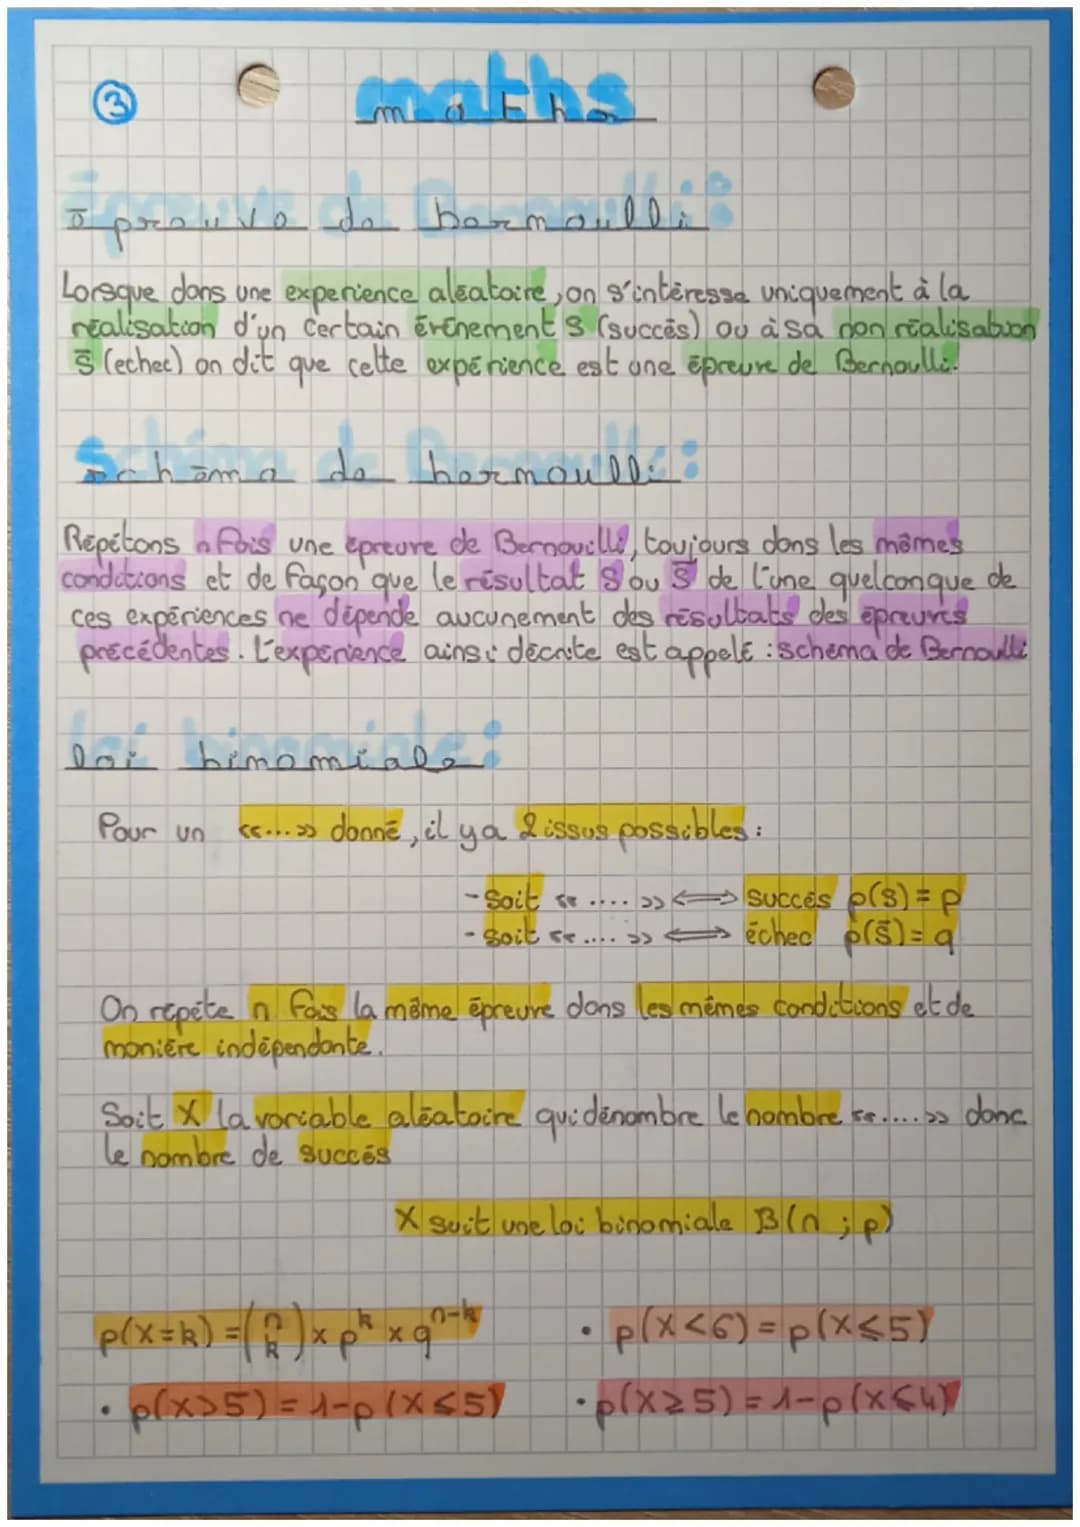 ③
maths
Épreuve de Bernoulli :
Lorsque dans une experience aléatoire, on s'intéresse uniquement à la
réalisation d'un certain évènement S (succès) ou à sa non réalisation
S̅ (echec) on dit que cette expérience est une épreuve de Bernoulli.
Schéma de Bernoulli :
Répétons n fois une épreuve de Bernouilli, toujours dans les mêmes
conditions et de façon que le résultat S ou S̅ de l'une quelconque de
ces expériences ne dépende aucunement des résultats des épreuves
précédentes. L'expérience ainsi décrite est appelé : schéma de Bernoulli
loi binomiale :
Pour un «....» donné, il y a 2 issus possibles :
- Soit «....» ⟺ succès p(S) = p
- Soit «....» ⟺ échec p(S̅) = q
On répète n fois la même épreuve dans les mêmes conditions et de
manière indépendante.
Soit X la variable aléatoire qui dénombre le nombre «.....» donc
le nombre de succès
X suit une loi binomiale B(n ; p)
p(X=k) = (n k) × p^k × q^(n-k)
• p(X<6) = p(X⩽5)
• p(X>5) = 1-p(X⩽5)
• p(X≥5) = 1-p(X⩽4)